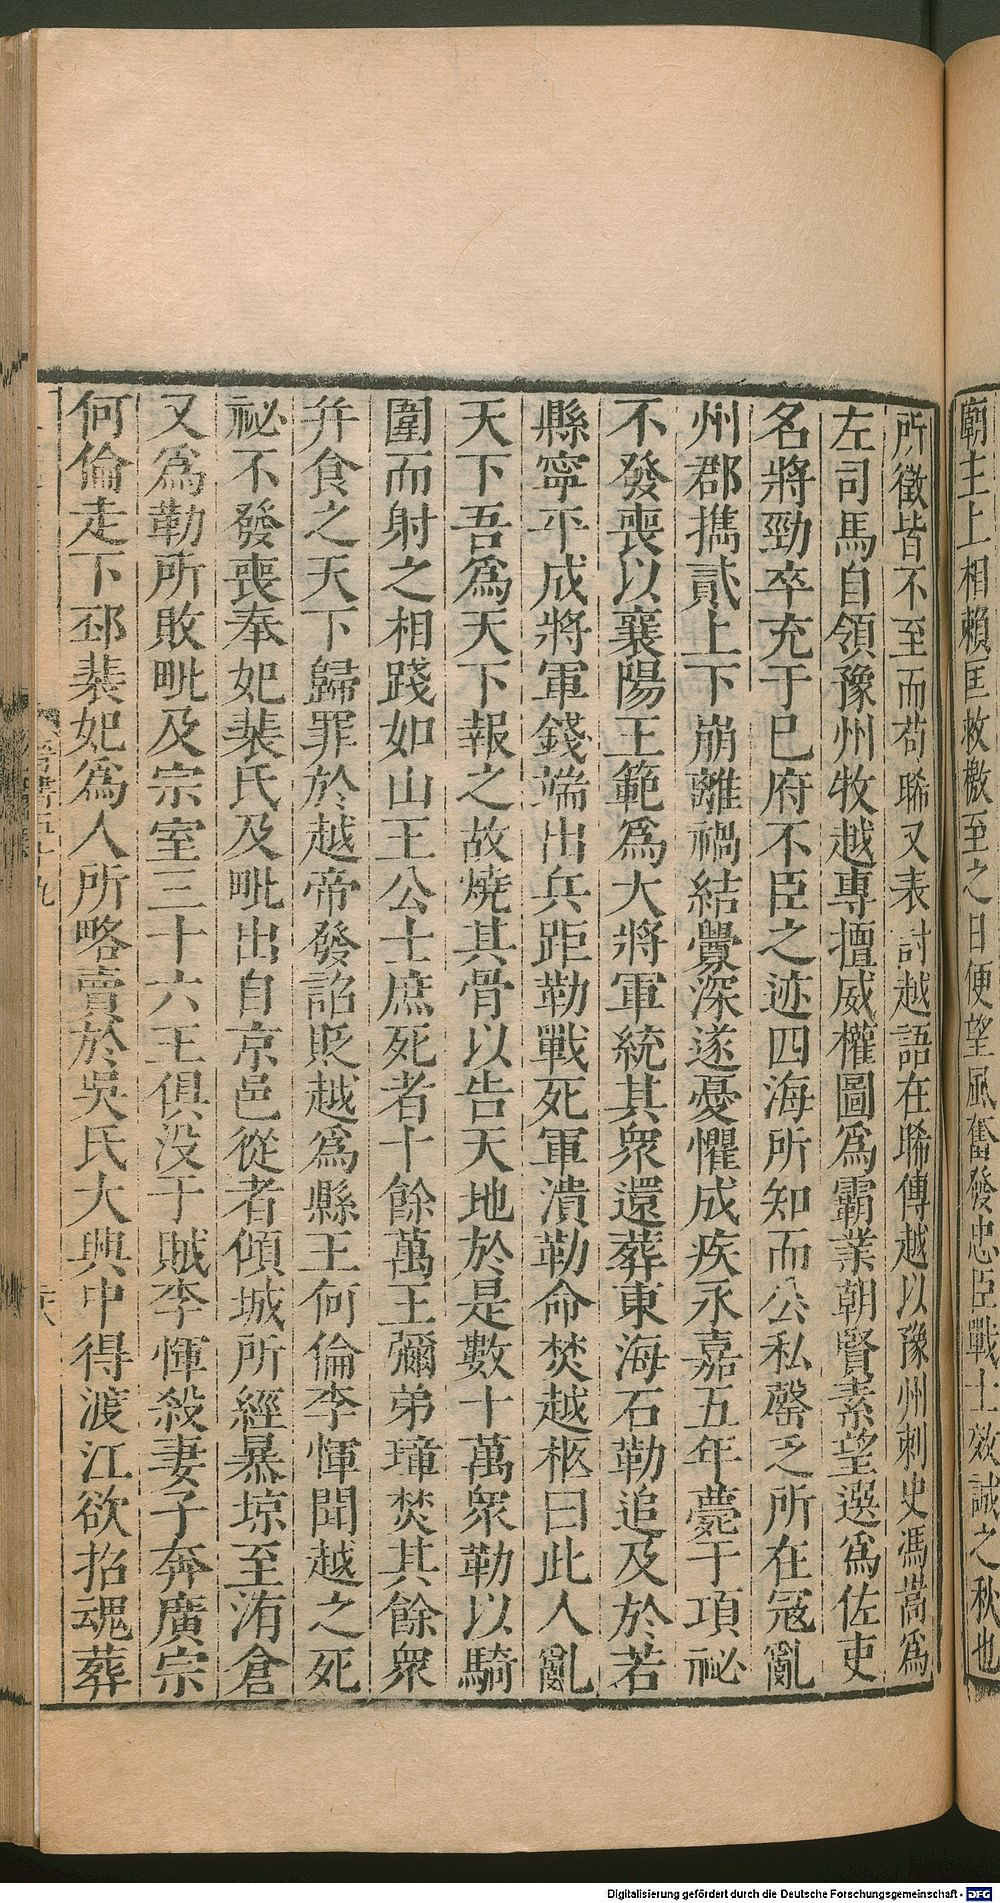 廟主上相賴匡救檄至之日便望風奮發忠臣戰士效誠之秋也
所徵皆不至而苟晞又表討越語在晞傳越以豫州刺史馮嵩爲
左司馬自領豫州牧越專擅威權圖爲霸業朝賢素望選爲佐吏
名將勁卒充于巳府不臣之迹四海所知而公私罄乏所在冦亂
州郡攜貳上下崩離禍結釁深遂憂懼成疾永嘉五年薨于項祕
不發喪以襄陽王範爲大將軍統其衆還葬東海石勒追及於若
縣寧平成將軍錢端出兵距勒戰死軍潰勒命焚越柩曰此人亂
天下吾爲天下報之故燒其骨以告天地於是數十萬衆勒以騎
圍而射之相踐如山王公士庶死者十餘萬王彌弟璋焚其餘衆
幷食之天下歸罪於越帝發詔貶越爲縣王何倫李惲聞越之死
祕不發喪奉妃裴氏及毗出自京邑從者傾城所經暴掠至洧倉
又爲勒所敗毗及宗室三十六王俱没于賊李惲殺妻子奔廣宗
何倫走下邳裴妃爲人所略賣於吳氏大興中得渡江欲招魂葬
晉書五十九
Digitalisierung gefördert durch die Deutsche Forschungsgemeinschaft - DFG